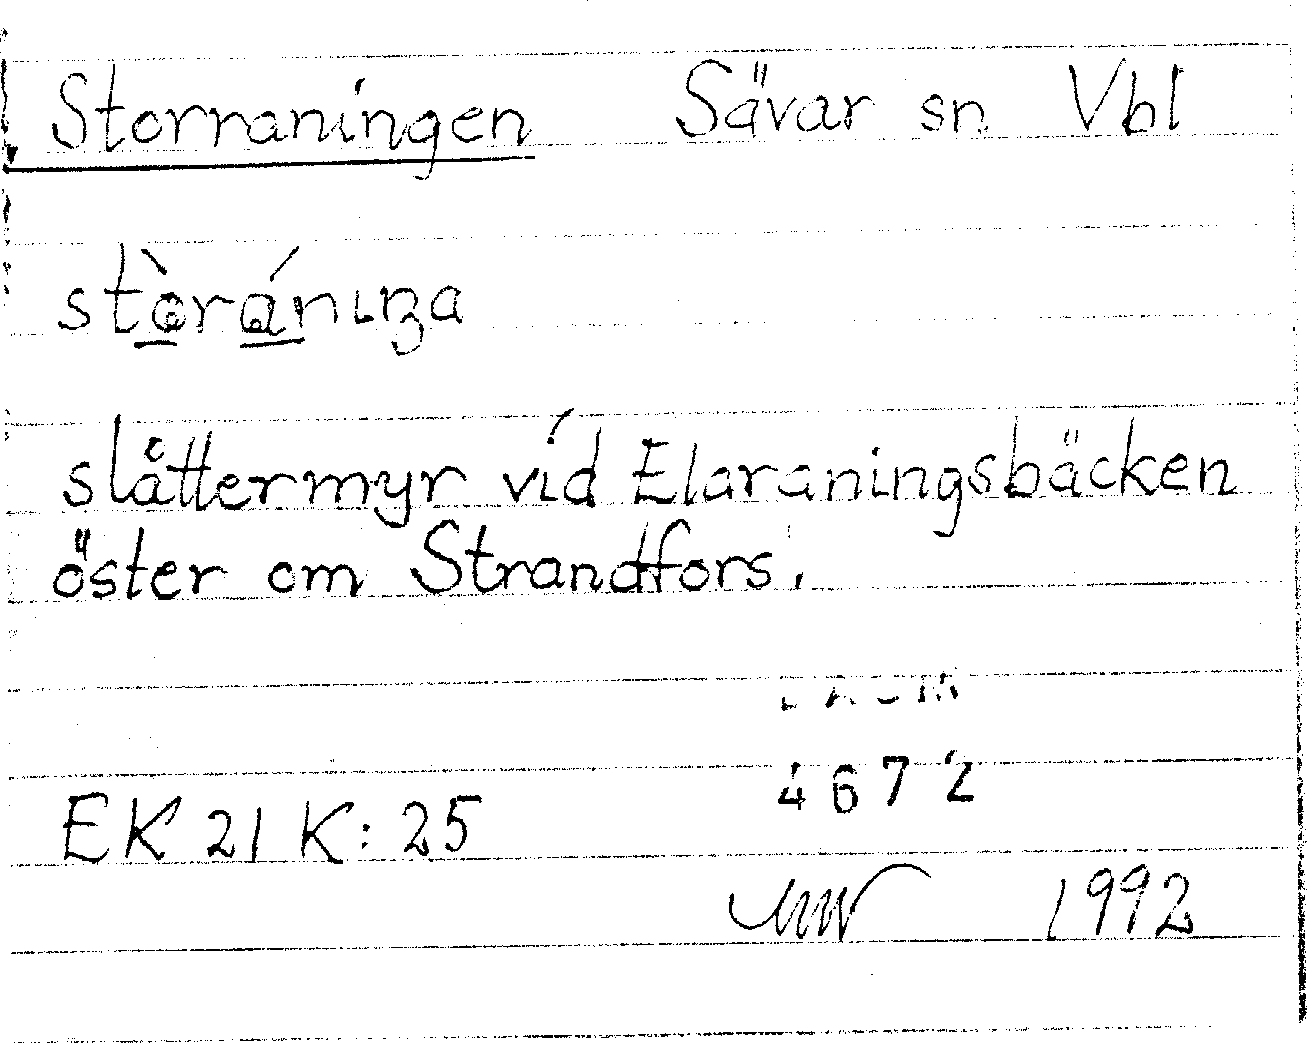 Storraningen Sävar sn Vbl
slåttermyr vid Elaraningsbäcken
öster om Strandfors.
4672
EK 21 K: 25
1992